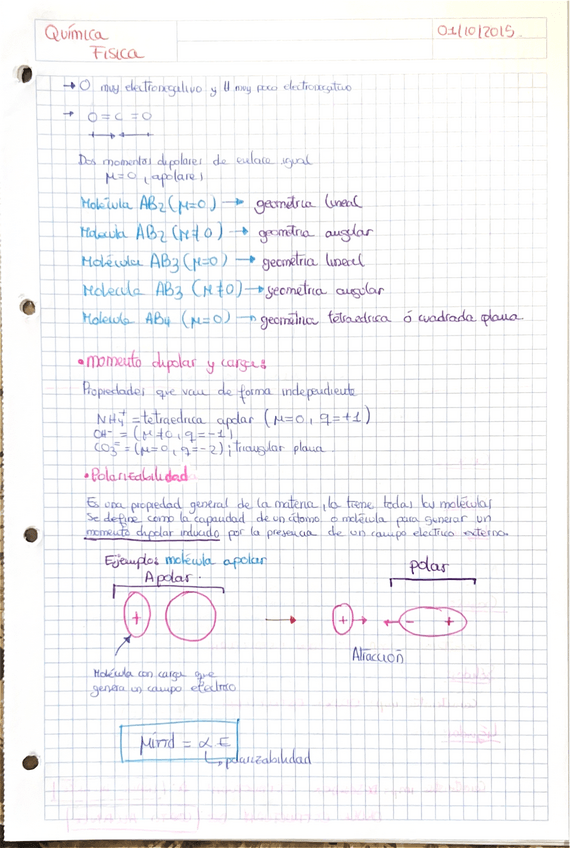 Química
Física
01/10/2015.
→ O muy electronegativo y H muy poco electronegativo
→ O = C = O
Dos momentos dipolares de enlace igual
μ=0, (apolares)
Molécula AB2 (μ=0) → geometría lineal
Molécula AB2 (μ≠0) → geometría angular
Molécula AB3 (μ=0) → geometría lineal
Molécula AB3 (μ≠0) → geometría angular
Molécula AB4 (μ=0) → geometría tetraedrica ó cuadrada plana.
• momento dipolar y carga:
Propiedades que van de forma independiente
NH4⁺ = tetraedrica apolar (μ=0, q=+1)
OH⁻ = (μ≠0, q=-1)
CO3⁼ = (μ=0, q=-2); triangular plana.
• Polarizabilidad
Es una propiedad general de la materia, la tiene todas las moléculas
Se define como la capacidad de un átomo o molécula para generar un
momento dipolar inducido por la presencia de un campo electrico externo.
Ejemplo: molécula apolar
Apolar.
polar
+
+
- +
Atracción
Molécula con carga que
genera un campo electrico
μind = α E
↳ polarizabilidad